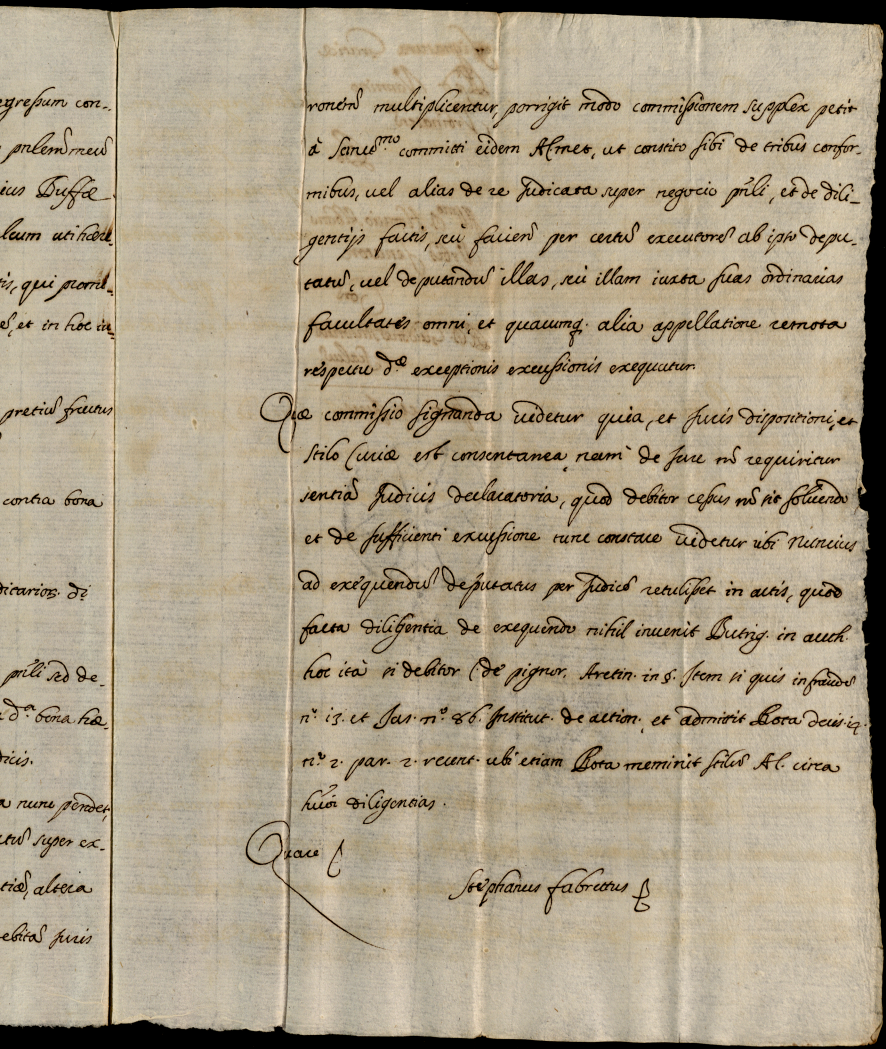 egressum con-
ius Buffæ
tis, qui promi-
et in hoc in-
pretiũ fructus
contra bona
pñli sed de-
d.ᵃ bona hæ-
dicis.
nunc pendet,
super ex-
altera
ebitã juris
ronẽtũ multiplicentur, porrigit modo commissionem supplex petit
à Sanct.ᵐᵒ committi eidem Al. met, ut constito sibi de tribus confor-
mibus, vel alias de re Judicata super negocio pñli, et de dili-
gentijs factis, seù faciend per certũ executorẽ ab ipso depu-
tatũ, vel deputandũ illas, seù illam iuxta suas ordinarias
facultates omni, et quacumq; alia appellatione remota
respectu d.æ exceptionis excussionis exequatur.
Quæ commissio signanda videtur quia, et Juris dispositioni, et
stilo Curiæ est consentanea, nam de Jure nõ requiritur
sentiã Judicis declaratoria, quod debitor cessus nõ sit solvendo,
et de sufficienti excussione tunc constare videtur ubi Nuncius
ad exequendũ deputatus per Judicẽ retulisset in actis, quod
facta diligentia de exequendo nihil invenit Butrig. in auth.
hoc ità si debitor C. de pignor. Aretin. in §. Item si quis in fraudẽ
n.º 13. et Jas. n.º 86. Institut. de action. et admisit Rota decis. 14.
n.º 2. par. 2. recent. ubi etiam Rota meminit stilũ Al. circa
hmõi diligentias.
Quare
Stephanus Fabrettus